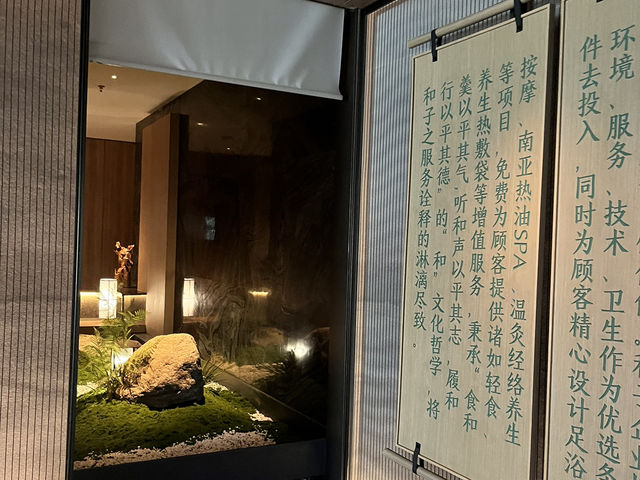 环境、服务、技术、卫生作为优选条
件去投入，同时为顾客精心设计足浴
按摩、南亚热油SPA、温灸经络养生
等项目，免费为顾客提供诸如轻食、
养生热敷袋等增值服务，秉承“食和
羹以平其气、听和声以平其志，履和
行以平其德”的“和”文化哲学，将
和子之服务诠释的淋漓尽致。